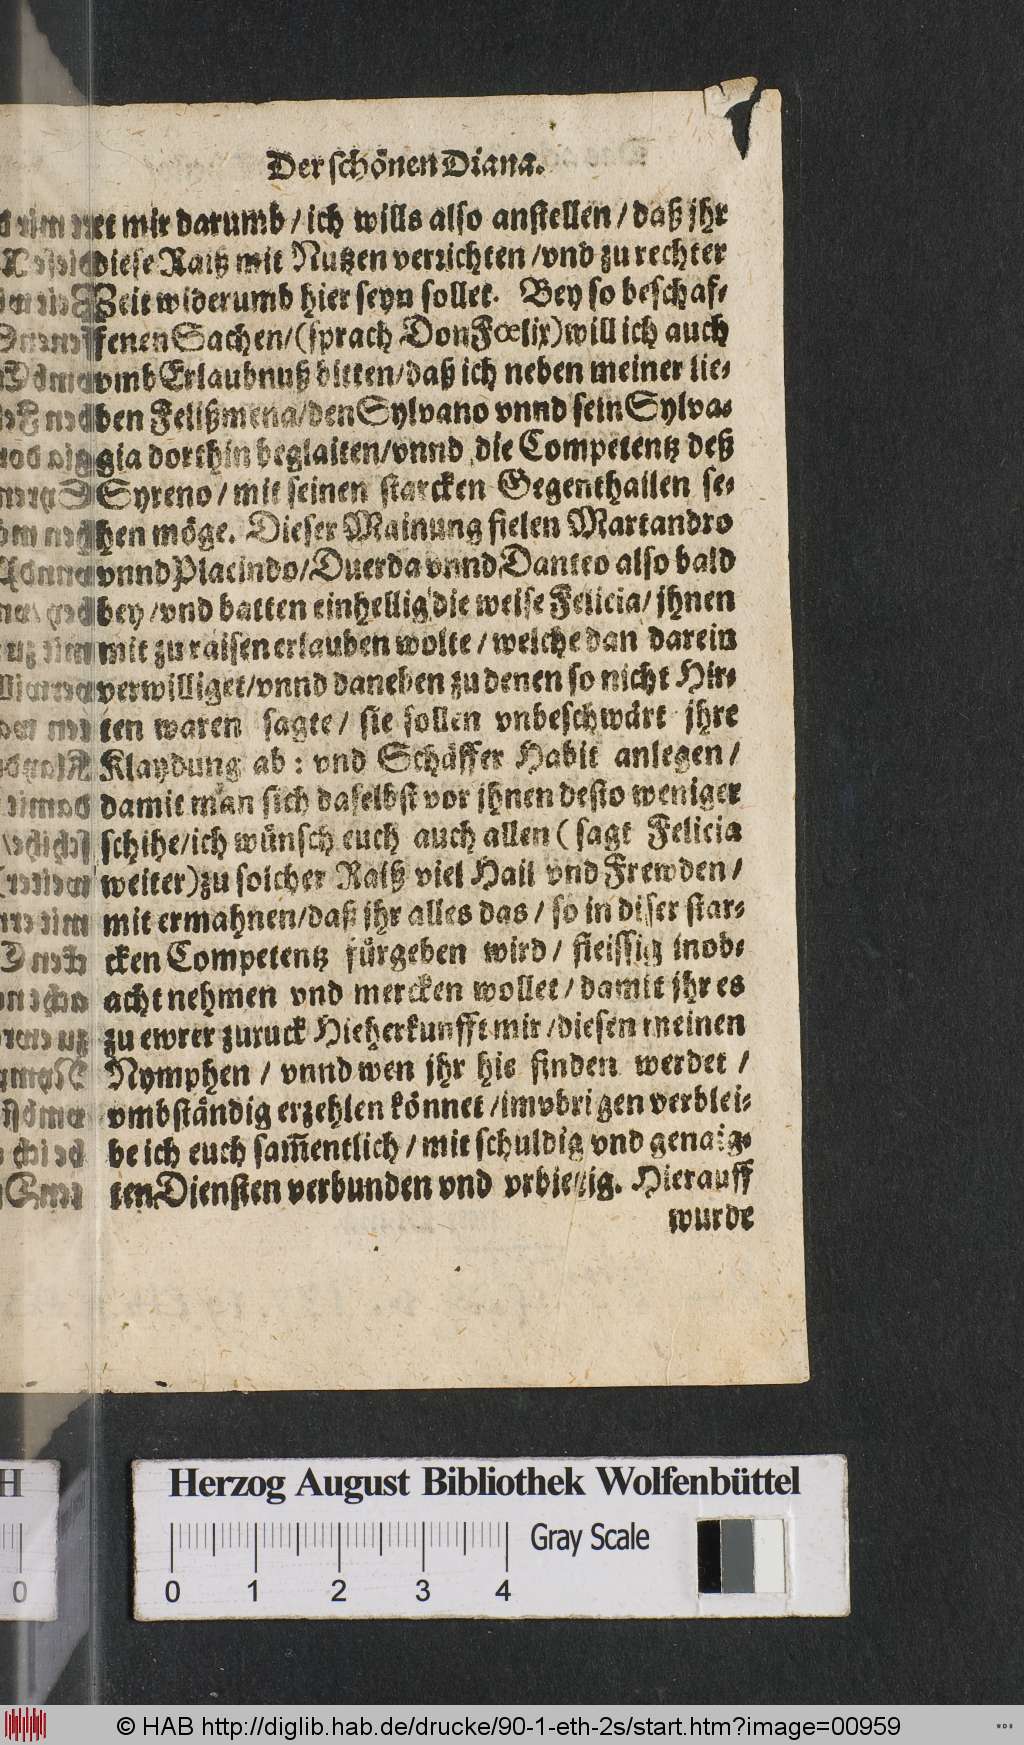 Der schönen Diana.
et mir darumb / ich wills also anstellen / daß jhr
diese Raiß mit Nutzen verzichten / vnd zu rechter
Zeit widerumb hier seyn sollet. Bey so beschaf-
fenen Sachen / (sprach Don Fœlix) will ich auch
vmb Erlaubnuß bitten / daß ich neben meiner lie-
ben Felißmena / den Sylvano vnnd sein Sylva-
gia dorthin beglaiten / vnnd die Competentz deß
Syreno / mit seinen starcken Gegenthailen se-
hen möge. Dieser Mainung fielen Martandro
vnnd Placindo / Duerda vnnd Danteo also bald
bey / vnd batten einhellig die weise Felicia / jhnen
mit zu raisen erlauben wolte / welche dan darein
verwilliget / vnnd daneben zu denen so nicht Hir-
ten waren sagte / sie sollen vnbeschwärt jhre
Klaydung ab: vnd Schäffer Habit anlegen /
damit man sich daselbst vor jhnen desto weniger
schihe / ich wünsch euch auch allen ( sagt Felicia
weiter) zu solcher Raiß viel Hail vnd Frewden /
mit ermahnen / daß jhr alles das / so in diser star-
cken Competentz fürgeben wird / fleissig inob-
acht nehmen vnd mercken wollet / damit jhr es
zu ewrer zuruck Hieherkunfft mir / diesen meinen
Nymphen / vnnd wen jhr hie finden werdet /
vmbständig erzehlen könnet / im vbrigen verblei-
be ich euch sam̃entlich / mit schuldig vnd genaig-
ten Diensten verbunden vnd vrbietig. Hierauff
wurde
H
0
Herzog August Bibliothek Wolfenbüttel
Gray Scale
0 1 2 3 4
© HAB http://diglib.hab.de/drucke/90-1-eth-2s/start.htm?image=00959